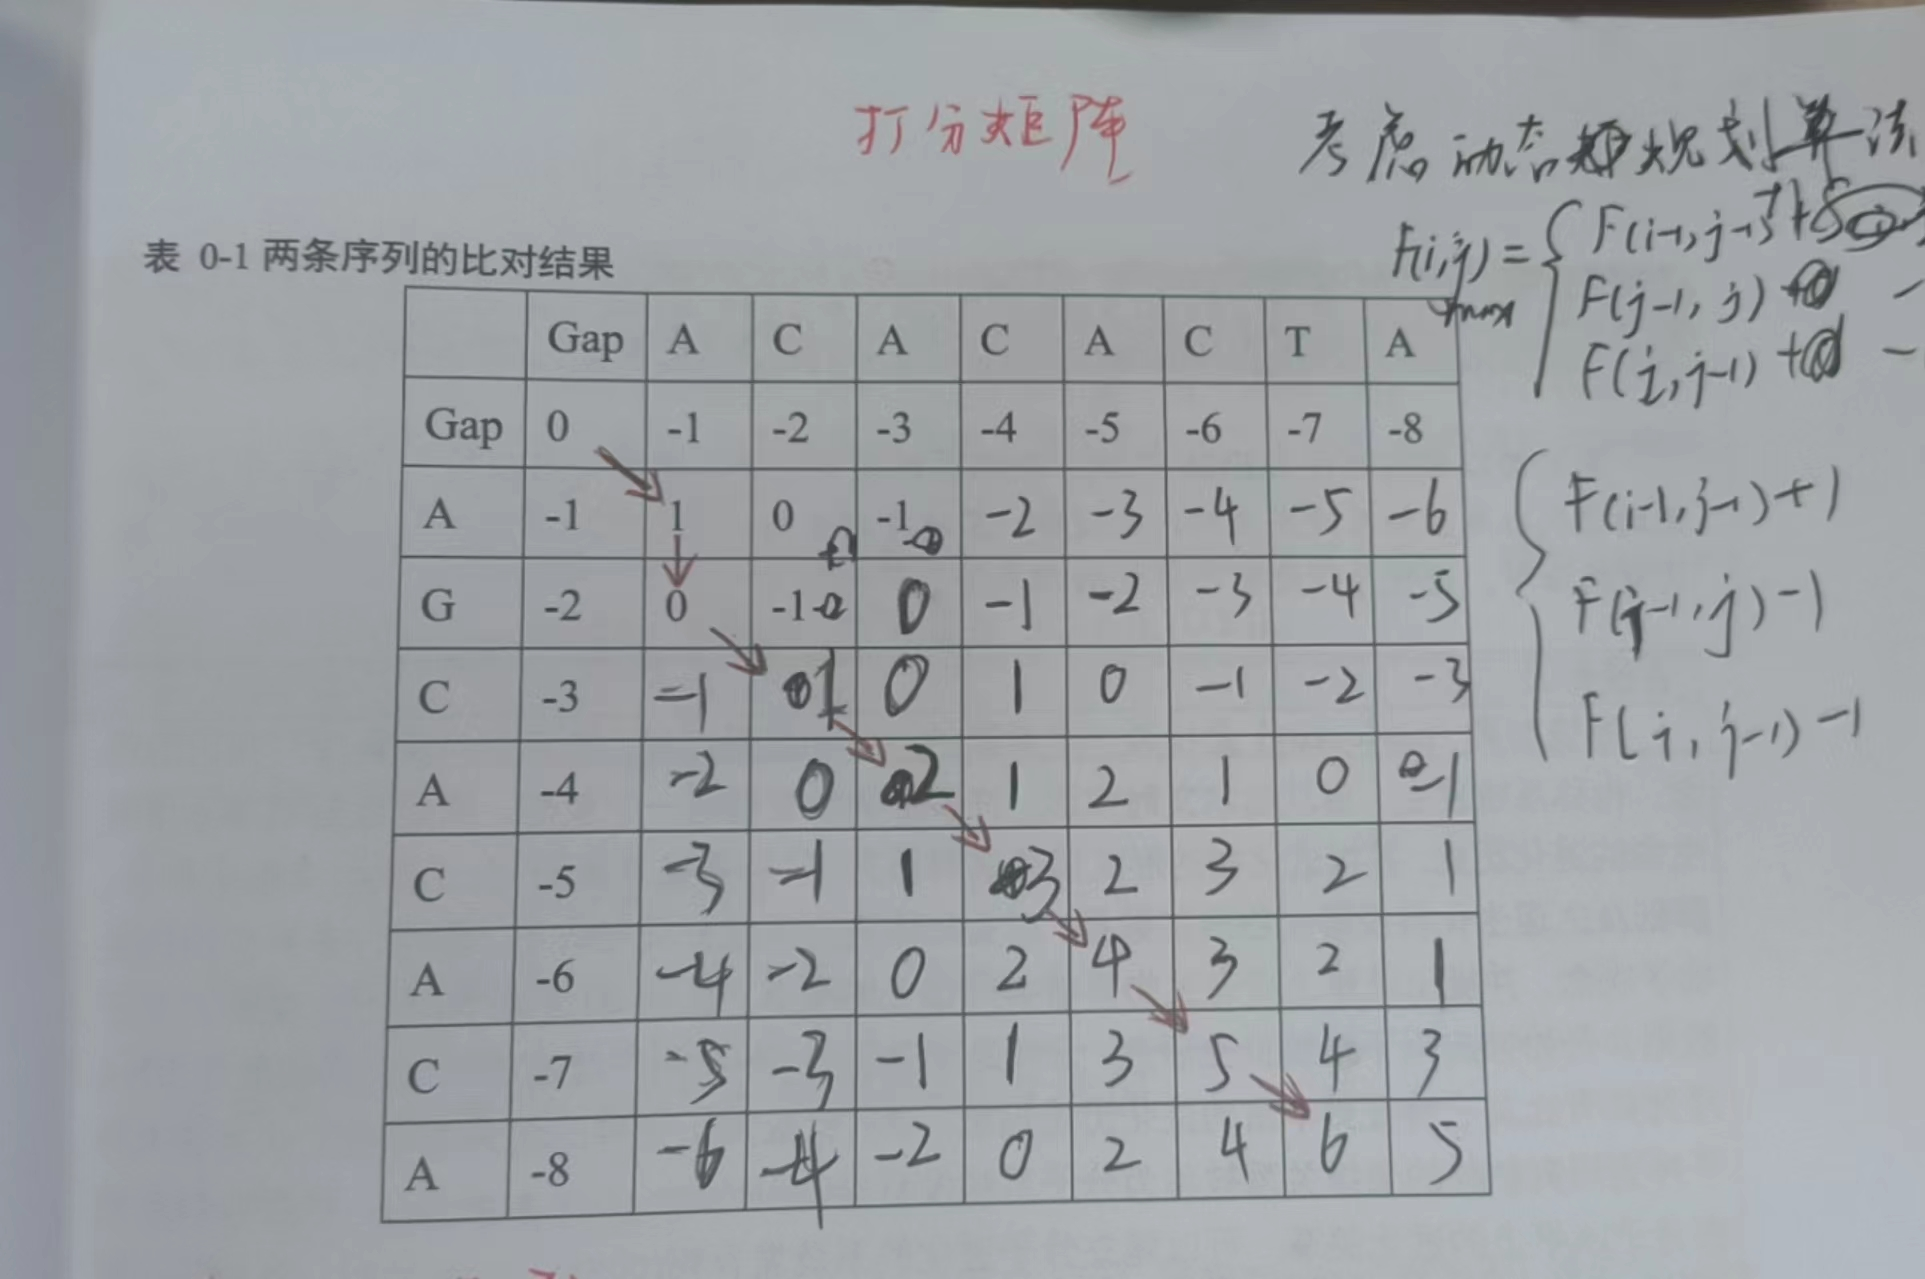 打分矩阵
考虑动态规划算法
F(i,j) = { F(i-1,j-1)+S
max
F(j-1,j)+d -
F(i,j-1)+d -
表 0-1 两条序列的比对结果
Gap A C A C A C T A
Gap 0 -1 -2 -3 -4 -5 -6 -7 -8
A -1 1 0 -1 -2 -3 -4 -5 -6
G -2 0 -1 0 -1 -2 -3 -4 -5
C -3 -1 1 0 1 0 -1 -2 -3
A -4 -2 0 2 1 2 1 0 -1
C -5 -3 -1 1 3 2 3 2 1
A -6 -4 -2 0 2 4 3 2 1
C -7 -5 -3 -1 1 3 5 4 3
A -8 -6 -4 -2 0 2 4 6 5
F(i-1,j-1)+1
F(i-1,j)-1
F(i,j-1)-1